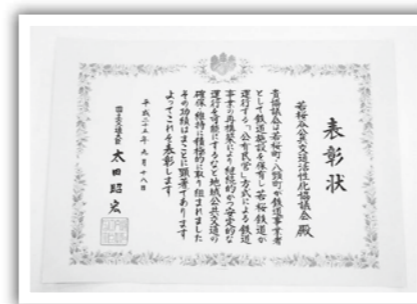 表彰状
若桜谷公共交通活性化協議会殿
貴協議会は若桜町・八頭町が鉄道事業者
として鉄道施設を保有し若桜鉄道が
運行する「公有民営」方式による鉄道
事業の再構築により継続的かつ安定的な
運行を可能にするなど地域公共交通の
確保・維持に積極的に取り組まれました
その功績はまことに顕著であります
よってこれを表彰します
平成二十五年九月十八日
国土交通大臣 太田昭宏